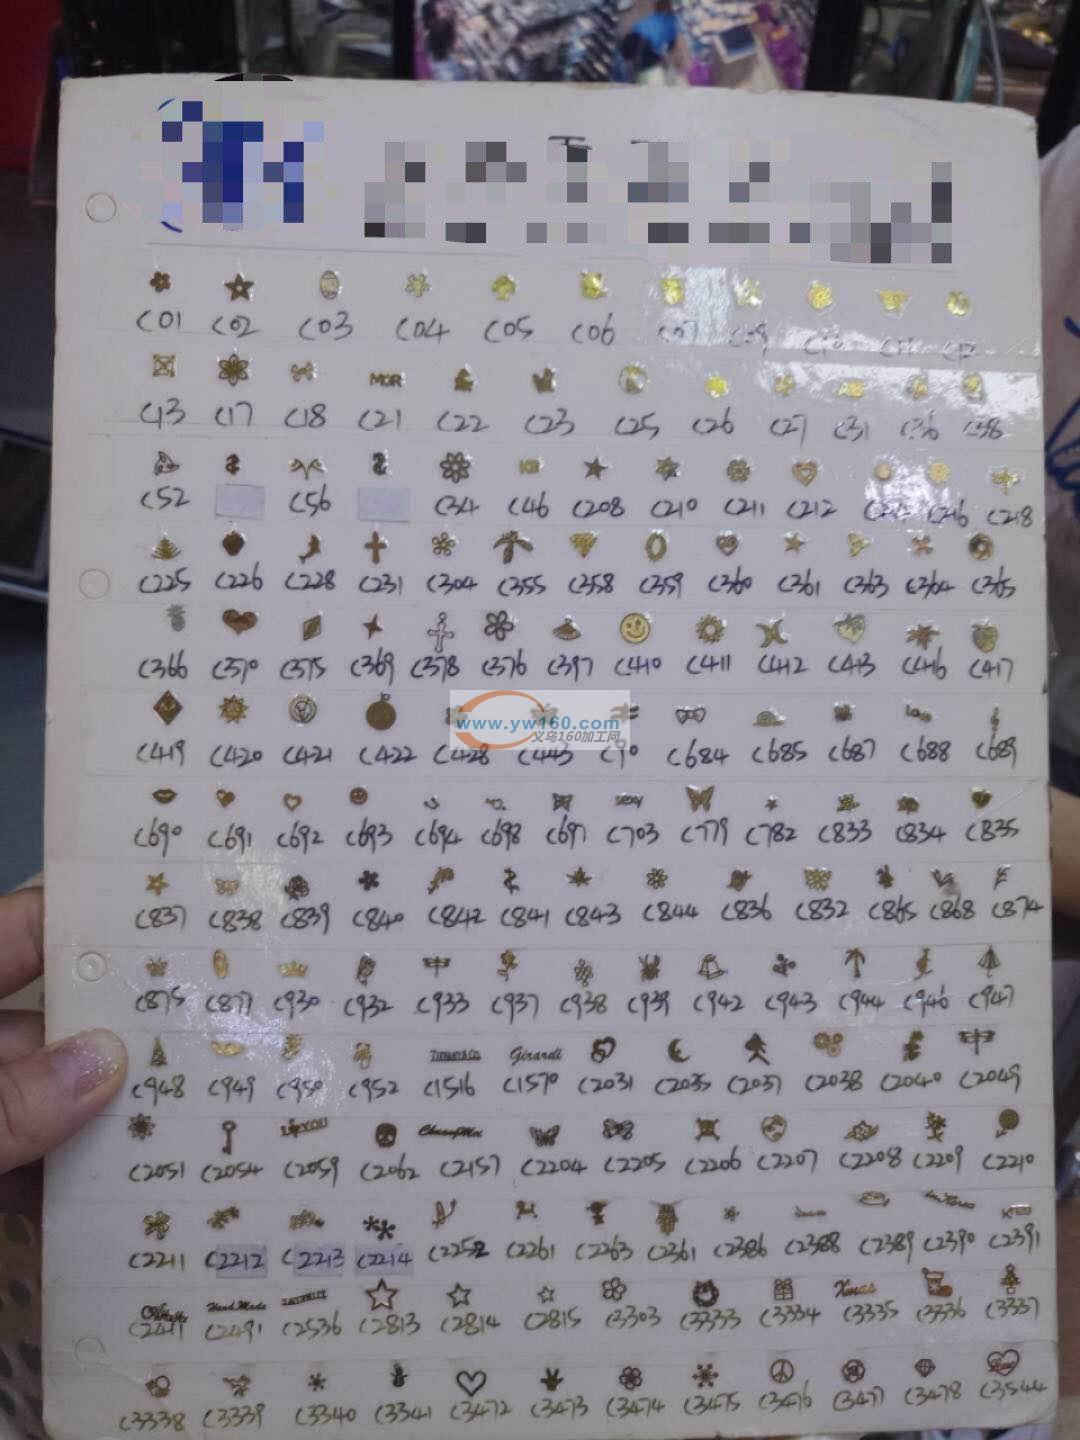 C01 C02 C03 C04 C05 C06 C07 C09
MGR
C13 C17 C18 C21 C22 C23 C25 C26 C27 C31 C36 C38
KB
C52 C56 C34 C46 C208 C210 C211 C212 C216 C218
C225 C226 C228 C231 C304 C355 C358 C359 C360 C361 C363 C364 C365
C366 C370 C375 C369 C378 C376 C397 C410 C411 C412 C413 C416 C417
www.yw160.com
义乌160加工网
C419 C420 C421 C422 C428 C443 C90 C684 C685 C687 C688 C689
sexy
C690 C691 C692 C693 C694 C698 C697 C703 C779 C782 C833 C834 C835
C837 C838 C839 C840 C842 C841 C843 C844 C836 C832 C865 C868 C874
C875 C877 C930 C932 C933 C937 C938 C939 C942 C943 C944 C946 C947
TIFFANY&CO Girardi
C948 C949 C950 C952 C1516 C1570 C2031 C2035 C2037 C2038 C2040 C2049
I YOU
C2051 C2054 C2059 C2062 C2157 C2204 C2205 C2206 C2207 C2208 C2209 C2210
C2211 C2212 C2213 C2214 C2252 C2261 C2263 C2361 C2386 C2388 C2389 C2390 C2391
Hand Made Xmas
C2491 C2536 C2813 C2814 C2815 C3303 C3333 C3334 C3335 C3336 C3337
Love
C3338 C3339 C3340 C3341 C3472 C3473 C3474 C3475 C3476 C3477 C3478 C3544